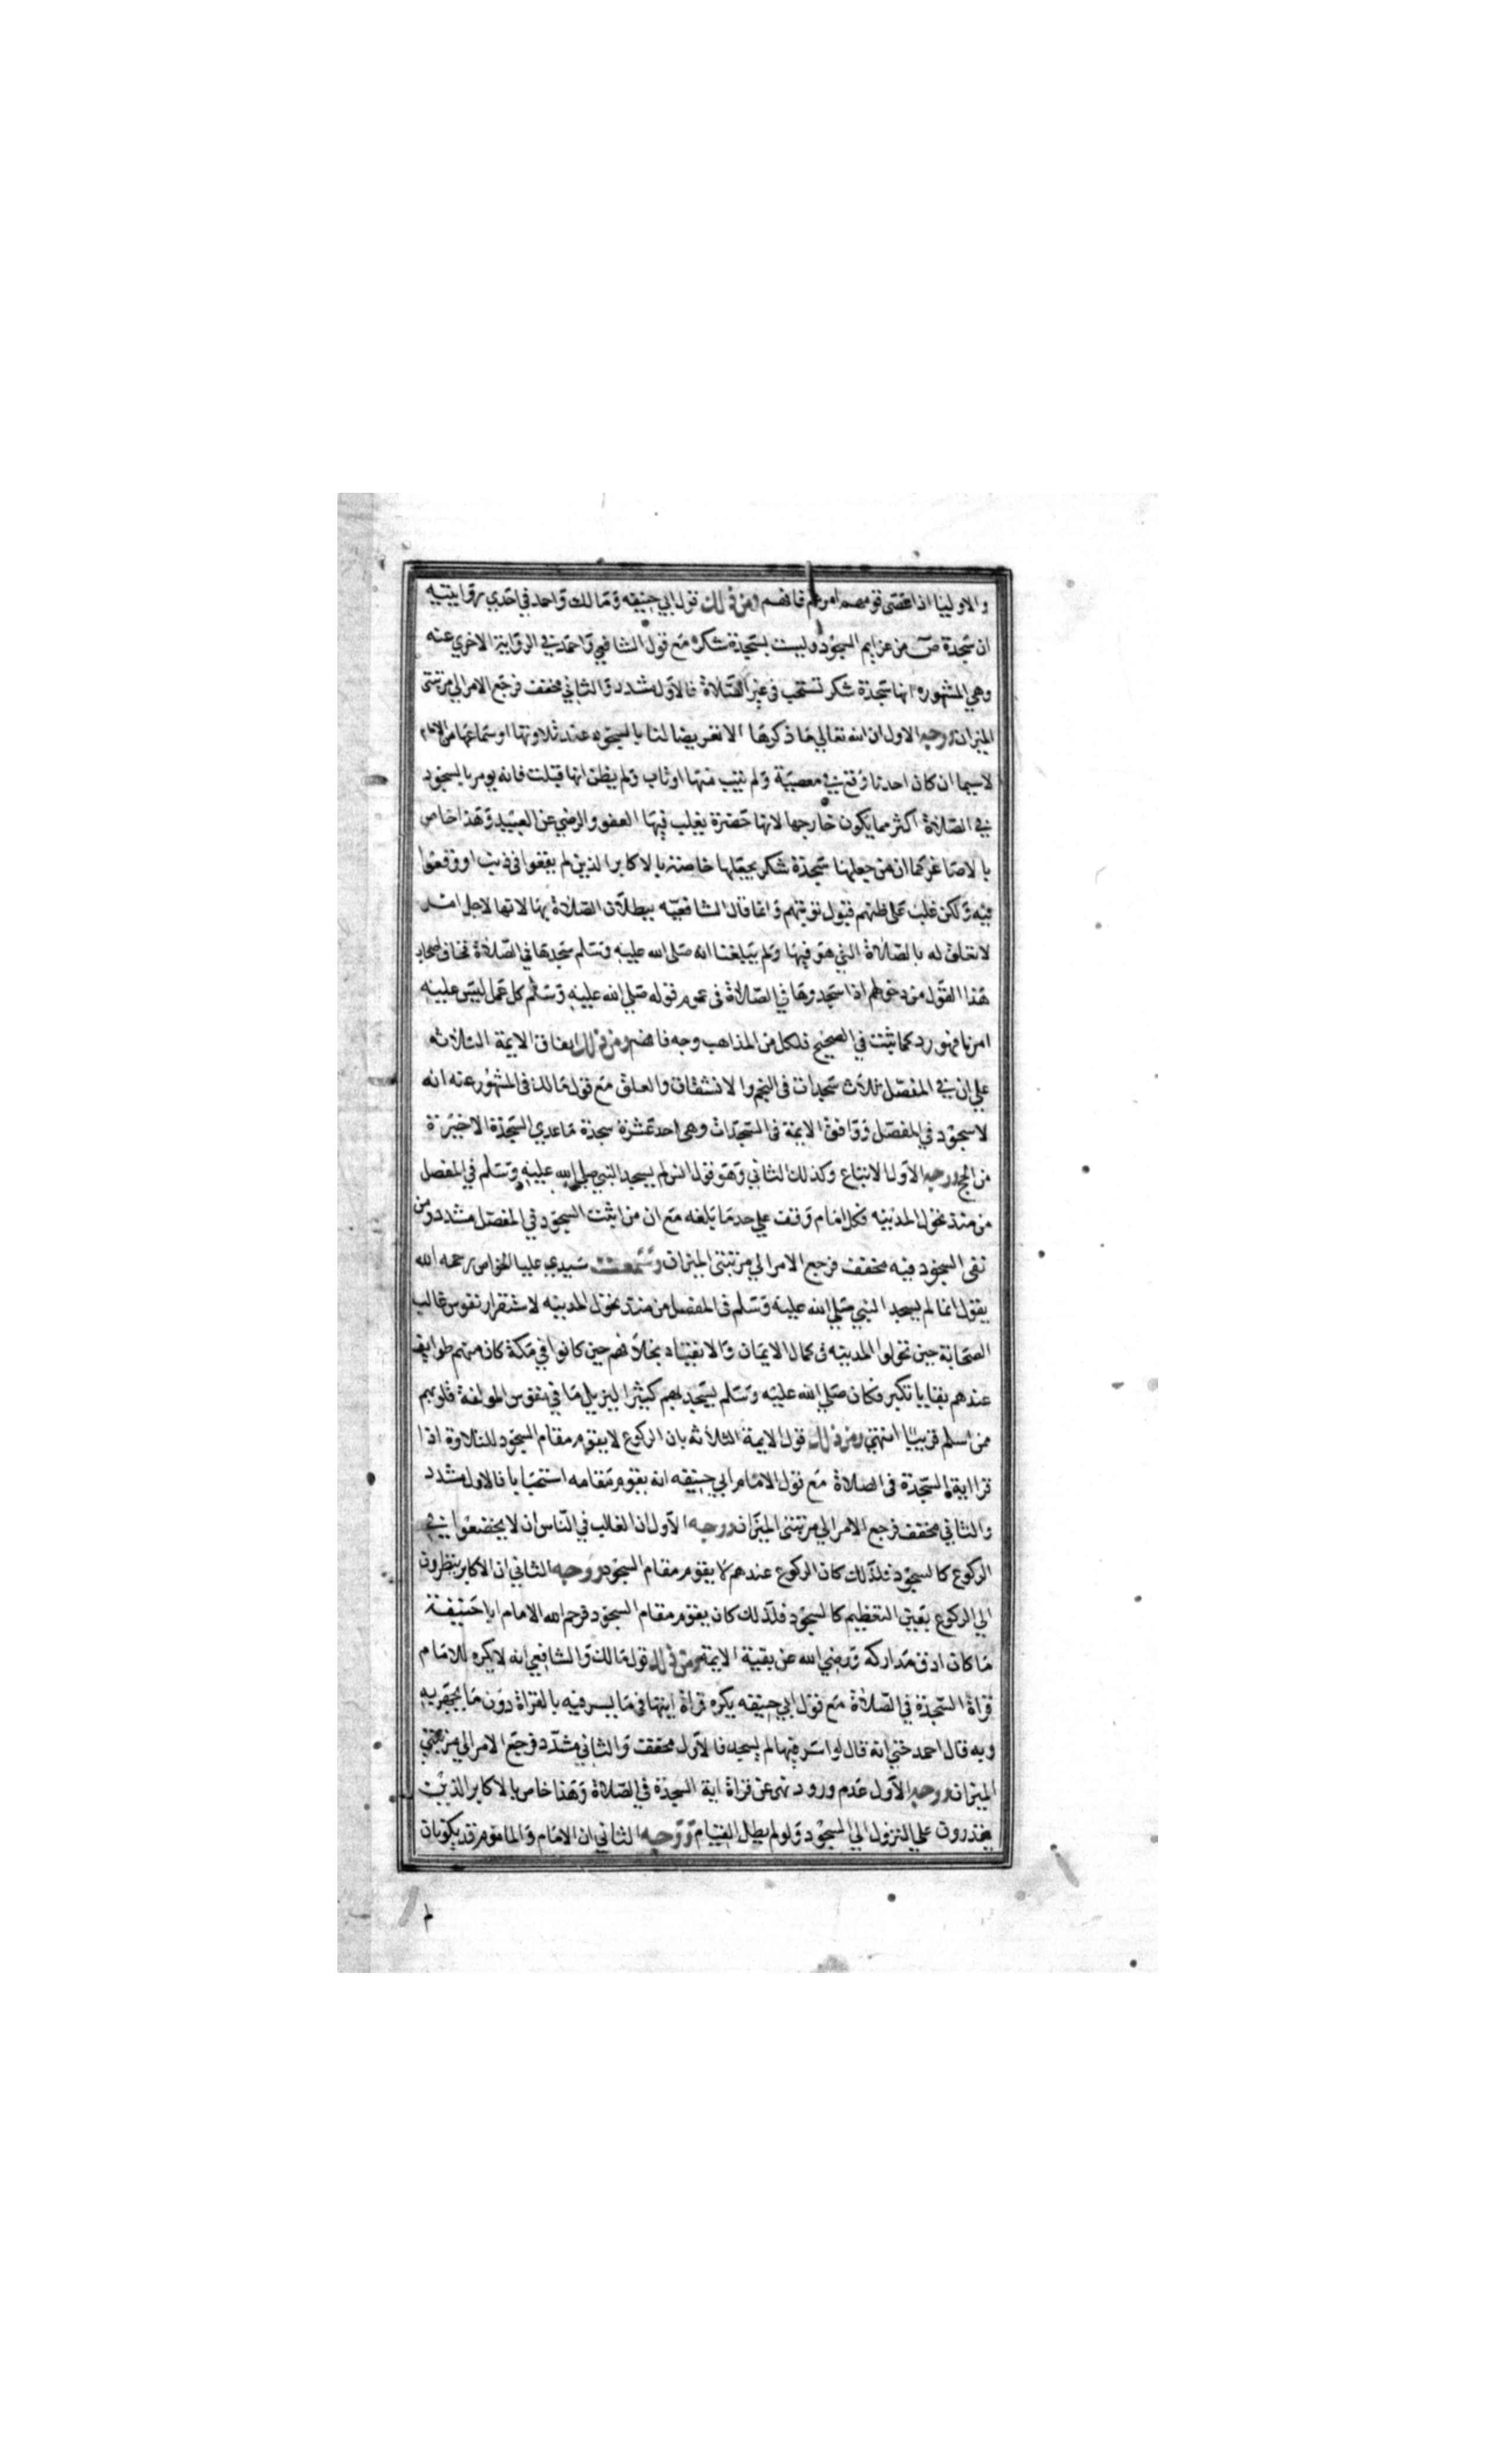 والاوليا اذا عصى قومهم امرهم فافهم ومن ذلك قول ابي حنيفه ومالك واحمد في احدي روايتيه
ان سجدة ص من عزايم السجود وليست بسجدة شكر مع قول الشافعي واحمد في الرواية الاخري عنه
وهي المشهوره انها سجدة شكر تستحب في غير الصلاة فالاول مشدد والثاني مخفف فرجع الامر الي مرتبتي
الميزان ووجه الاول ان الله تعالي ما ذكرها الا تعريضا لنا بالسجود عند تلاوتها او سماعها من الامام
لاسيما ان كان احدنا وقع في معصية ولم يتب منها او تاب ولم يظن انها قبلت فانه يومر بالسجود
في الصلاة اكثر مما يكون خارجها لانها حضرة يغلب فيها العفو والرضي عن العبيد وهذا خاص
بالاصاغر كما ان من جعلها سجدة شكر يجعلها خاصة بالاكابر الذين لم يقعوا في ذنب او وقعوا
فيه ولكن غلب على ظنهم قبول توبتهم وانما قال الشافعيه ببطلان الصلاة بها لانها لاجل امر
لا تعلق له بالصلاة التي هو فيها ولم يبلغنا انه صلى الله عليه وسلم سجدها في الصلاة فخاف اصحاب
هذا القول من دخولهم اذا سجدوها في الصلاة في عموم قوله صلي الله عليه وسلم كل عمل ليس عليه
امرنا فهو رد كما ثبت في الصحيح فلكل من المذاهب وجه فافهم ومن ذلك اتفاق الايمة الثلاثه
علي ان في المفصل ثلاث سجدات في النجم والانشقاق والعلق مع قول مالك في المشهور عنه انه
لا سجود في المفصل ووافق الايمة في السجدات وهي احد عشرة سجدة ماعدي السجدة الاخيرة
من الحج ووجه الاول الاتباع وكذلك الثاني وهو قول انس لم يسجد النبي صلي الله عليه وسلم في المفصل
من منذ تحول المدينه فكل امام وقف علي حد ما بلغه مع ان من اثبت السجود في المفصل مشدد ومن
نفي السجود فيه مخفف فرجع الامر الي مرتبتي الميزان وسمعت سيدي عليا الخواص رحمه الله
يقول انما لم يسجد النبي صلي الله عليه وسلم في المفصل من منذ تحول المدينه لاستقرار نفوس غالب
الصحابة حين تحولوا المدينه في كمال الايمان والانقياد بخلافهم حين كانوا في مكة كان منهم طوايف
عندهم بقايا تكبر فكان صلي الله عليه وسلم يسجد بهم كثيرا ليزيل ما في نفوس المولفة قلوبهم
ممن اسلم قريبا انتهي ومن ذلك قول الايمة الثلاثه بان الركوع لا يقوم مقام السجود للتلاوة اذا
قرا اية السجدة في الصلاة مع قول الامام ابي حنيفه انه يقوم مقامه استحبابا فالاول مشدد
والثاني مخفف فرجع الامر الي مرتبتي الميزان ووجه الاول ان الغالب في الناس ان لا يخضعوا في
الركوع كالسجود فلذلك كان الركوع عندهم لا يقوم مقام السجود ووجه الثاني ان الاكابر ينظرون
الي الركوع بعين التعظيم كالسجود فلذلك كان يقوم مقام السجود فرحم الله الامام ابا حنيفة
ما كان ادق مداركه ورضي الله عن بقية الايمة ومن ذلك قول مالك والشافعي انه لا يكره للامام
قراة السجدة في الصلاة مع قول ابي حنيفه يكره قراة ايتها في ما يسر فيه بالقراة دون ما يجهر به
وبه قال احمد حتي انه قال لو اسر فيها لم يسجد فالاول مخفف والثاني مشدد فرجع الامر الي مرتبتي
الميزان ووجه الاول عدم ورود نهي عن قراة اية السجدة في الصلاة وهذا خاص بالاكابر الذين
يقدرون علي النزول الي السجود ولو لم يطل القيام ووجه الثاني ان الامام والماموم قد يكونان